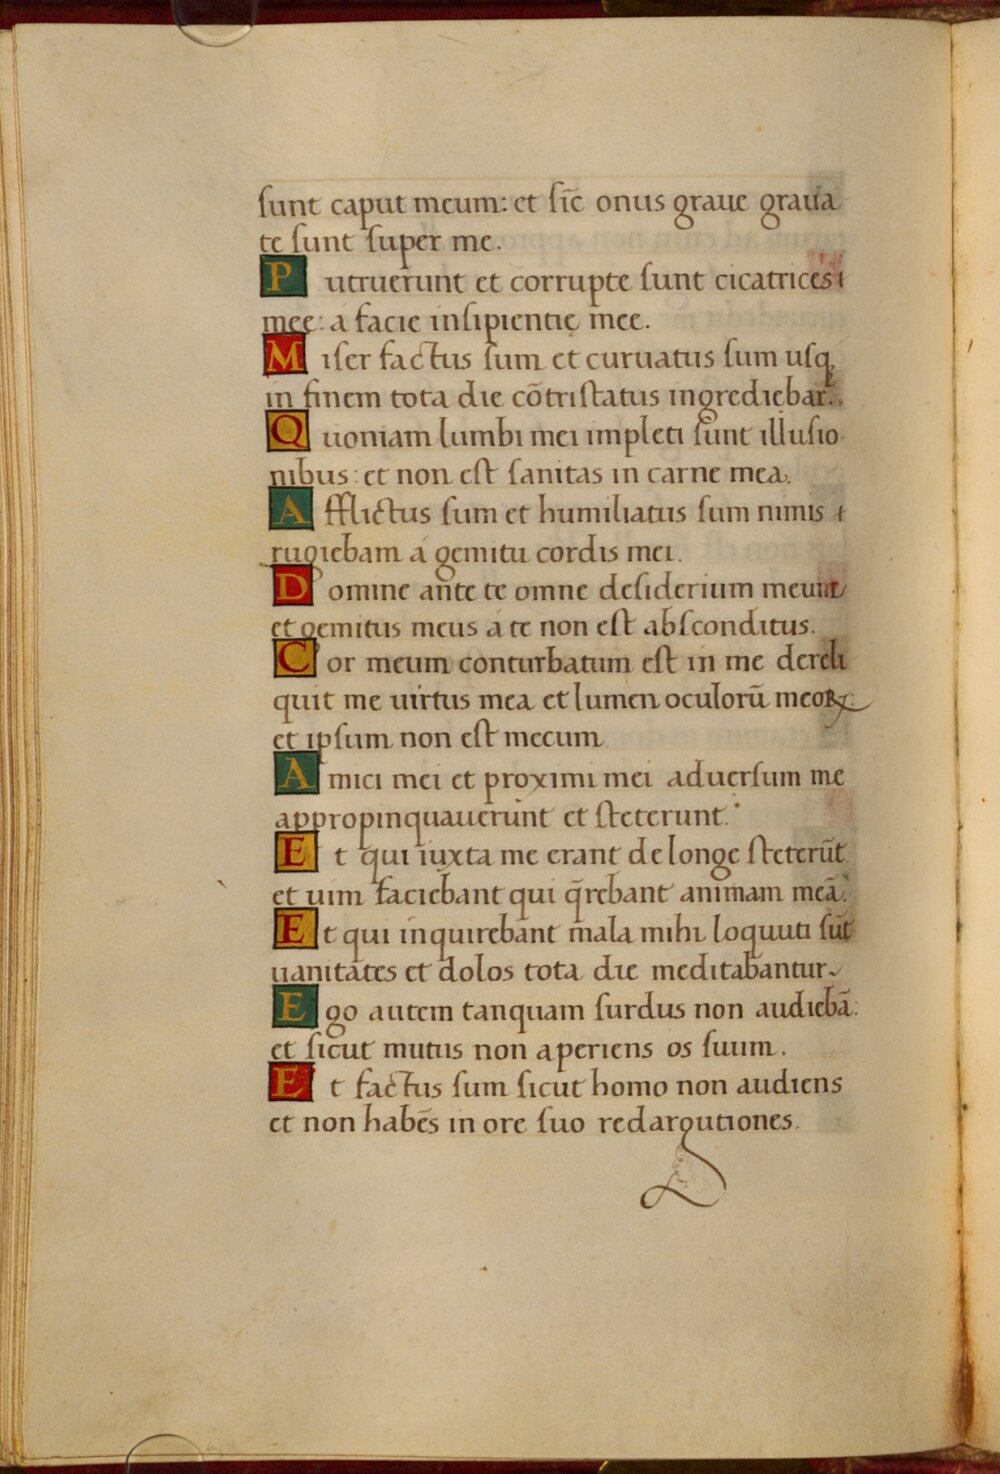 sunt caput meum: et sic̄ onus graue graua
te sunt super me.
Putruerunt et corrupte sunt cicatrices
mee: a facie insipientię mee.
Miser factus sum et curuatus sum usq̨
in finem tota die cõtristatus ingrediebar.
Quoniam lumbi mei impleti sunt illusio
nibus: et non est sanitas in carne mea.
Afflictus sum et humiliatus sum nimis ⁊
rugiebam á gemitu cordis mei.
Domine ante te omne desiderium meum
et gemitus meus á te non est absconditus.
Cor meum conturbatum est in me dereli
quit me uirtus mea et lumen oculorū meoꝝ:
et ipsum non est mecum
Amici mei et proximi mei aduersum me
appropinquauerunt et steterunt.
Et qui iuxta me erant de longe steterūt.
et uim faciebant qui q̄rebant animam meā.
Et qui inquirebant mala mihi loquuti sūt
uanitates et dolos tota die meditabantur
Ego autem tanquam surdus non audiebā:
et sicut mutus non aperiens os suum.
Et factus sum sicut homo non audiens
et non habēs in ore suo redargutiones.